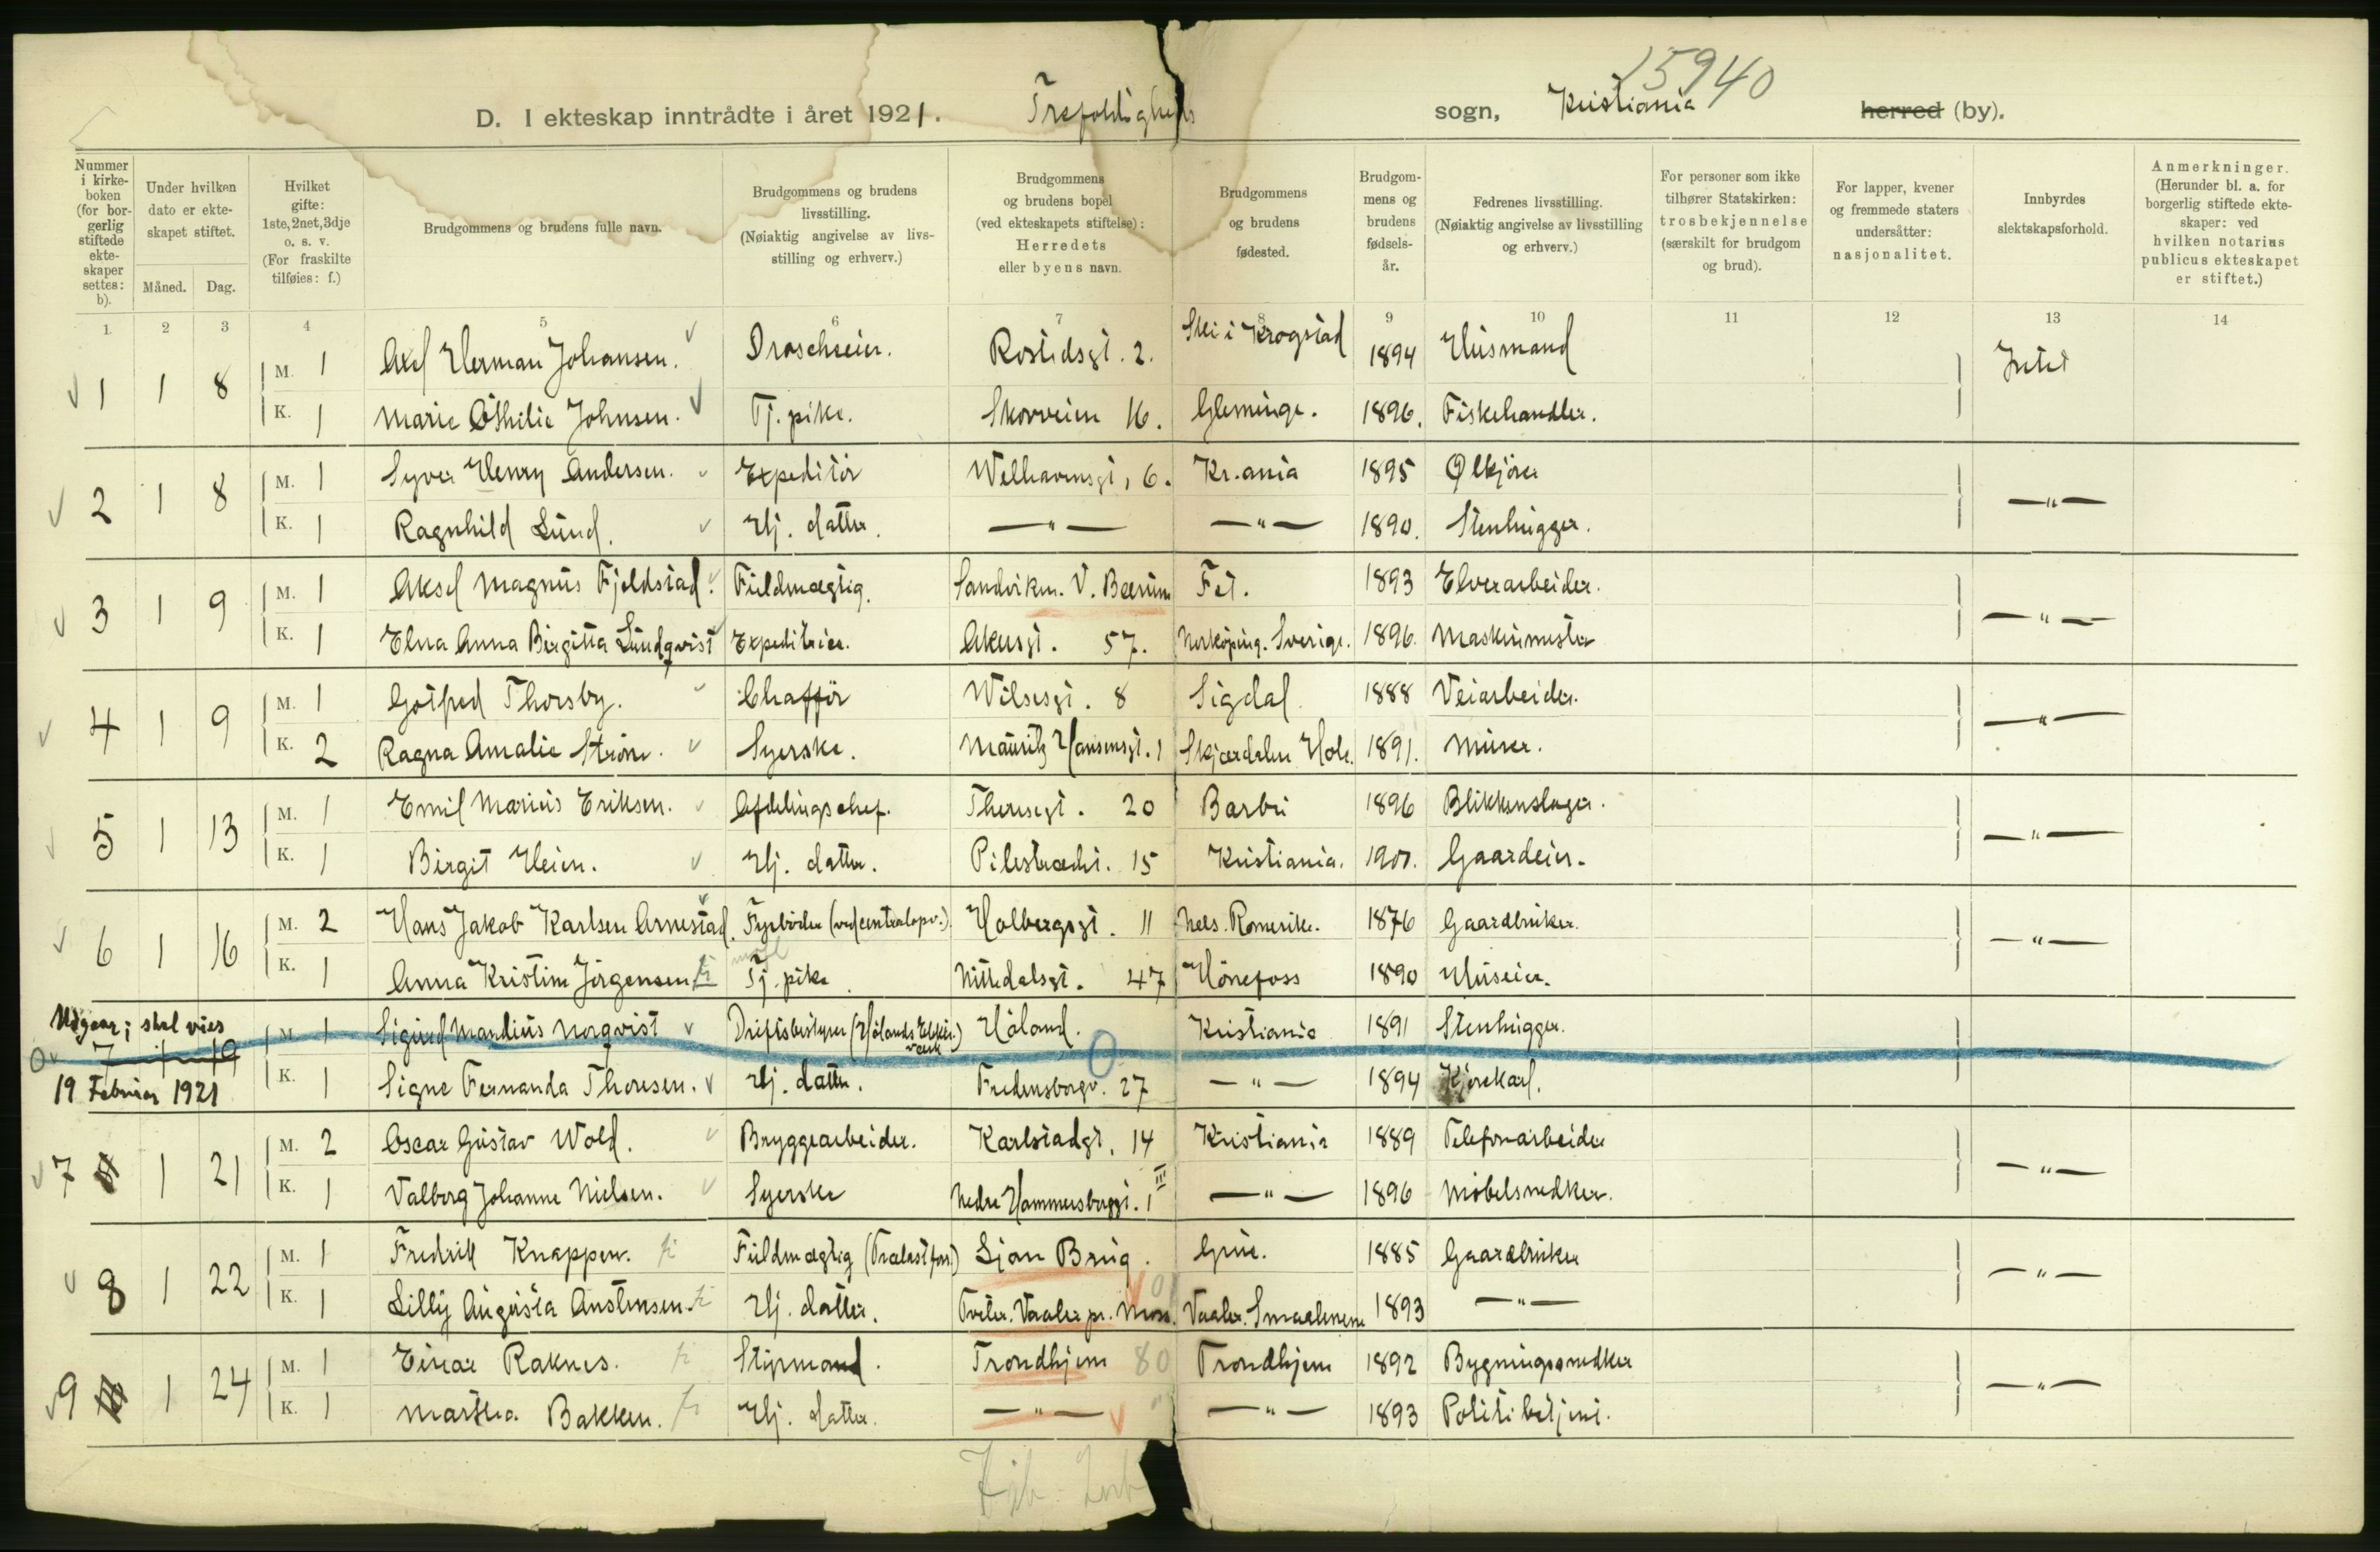 15940
D. I ekteskap inntrådte i året 1921. Trefoldigheds sogn, Kristiania herred (by).
Nummer i kirkeboken (for borgerlig stiftede ekteskaper settes: b).
Under hvilken dato er ekteskapet stiftet.
Måned. Dag.
Hvilket gifte: 1ste, 2net, 3dje o. s. v. (For fraskilte tilføies: f.)
Brudgommens og brudens fulle navn.
Brudgommens og brudens livsstilling. (Nøiaktig angivelse av livsstilling og erhverv.)
Brudgommens og brudens bopel (ved ekteskapets stiftelse): Herredets eller byens navn.
Brudgommens og brudens fødested.
Brudgommens og brudens fødselsår.
Fedrenes livsstilling. (Nøiaktig angivelse av livsstilling og erhverv.)
For personer som ikke tilhører Statskirken: trosbekjennelse (særskilt for brudgom og brud).
For lapper, kvener og fremmede staters undersåtter: nasjonalitet.
Innbyrdes slektskapsforhold.
Anmerkninger. (Herunder bl. a. for borgerlig stiftede ekteskaper: ved hvilken notarius publicus ekteskapet er stiftet.)
1 2 3 4 5 6 7 8 9 10 11 12 13 14
1 1 8 M. 1 Axel Herman Johansen. Droscheeier. Rostedsgt. 2. Ski i Krogstad 1894 Husmand Intet
K. 1 Marie Othilie Johnsen. Tj. pike. Skovveien 16. Glemminge. 1896. Fiskehandler.
2 1 8 M. 1 Syver Henry Andersen. Expeditör Welhavensgt. 6. Kr.ania 1895 Ølkjører —"—
K. 1 Ragnhild Lund. Hj. datter. —"— —"— 1890. Stenhugger.
3 1 9 M. 1 Aksel Magnus Fjeldstad. Fuldmægtig. Sandviken. V. Bærum Fet. 1893 Elvearbeider. —"—
K. 1 Elna Anna Birgitta Lundqvist Expeditrice. Akersgt. 57. Norköping. Sverige. 1896. Maskinmester
4 1 9 M. 1 Gotfred Thorsby. Chafför Wilsesgt. 8 Sigdal 1888 Veiarbeider. —"—
K. 2 Ragna Amalie Ström. Syerske. Mauritz Hansensgt. 1 Skjærdalen Hole. 1891. Murer.
5 1 13 M. 1 Emil Marius Eriksen. Afdelingschef. Theresegt. 20 Barbu 1896 Blikkenslager. —"—
K. 1 Birgit Heien. Hj. datter. Pilestrædet. 15 Kristiania. 1901. Gaardeier.
6 1 16 M. 2 Hans Jakob Karlsen Arnestad. Fyrböder (ved centralopv.). Holbergsgt. 11 Nes. Romerike. 1876 Gaardbruker. —"—
K. 1 Anna Kristine Jörgensen Tj. pike. Nittedalsgt. 47 Hönefoss 1890 Huseier.
Udgaar; skal vies
7 1 19 M. 1 Sigurd Mandius Norqvist Driftsbestyrer (Hölands Elektr. værk) Höland. Kristiania 1891 Stenhugger. "
19 Februar 1921 K. 1 Signe Fernanda Thoresen. Hj. datter. Fredensborgv. 27 —"— 1894 Kjørekarl.
7 1 21 M. 2 Oscar Gustav Wold. Bryggearbeider. Karlstadgt. 14 Kristiania 1889 Telefonarbeider —"—
K. 1 Valborg Johanne Nielsen. Syerske Nedre Hammersborggt. 1 III —"— 1896 Möbelsnedker.
8 1 22 M. 1 Fredrik Knappen. Fuldmægtig (Trælastforr.) Ljan Brug. Grue. 1885 Gaardbruker —"—
K. 1 Lilly Augusta Anstensen. Hj. datter. Tveter. Vaaler pr. Moss. Vaaler. Smaalenene 1893 —"—
9 1 24 M. 1 Einar Raknes. Styrmand. Trondhjem 80 Trondhjem 1892 Bygningssnedker —"—
K. 1 Martha Bakken. Hj. datter. —"— —"— 1893 Politibetjent.